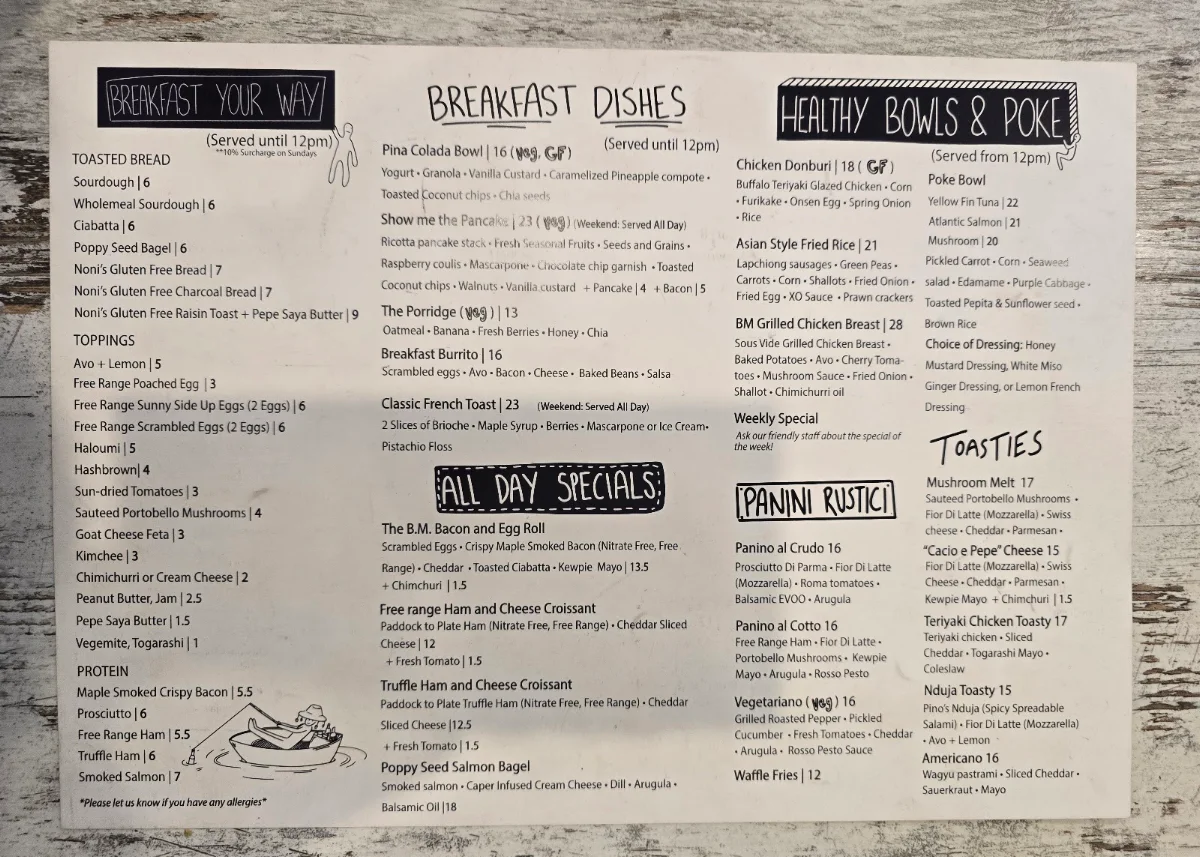 BREAKFAST YOUR WAY
(Served until 12pm)
**10% Surcharge on Sundays
TOASTED BREAD
Sourdough | 6
Wholemeal Sourdough | 6
Ciabatta | 6
Poppy Seed Bagel | 6
Noni's Gluten Free Bread | 7
Noni's Gluten Free Charcoal Bread | 7
Noni's Gluten Free Raisin Toast + Pepe Saya Butter | 9
TOPPINGS
Avo + Lemon | 5
Free Range Poached Egg | 3
Free Range Sunny Side Up Eggs (2 Eggs) | 6
Free Range Scrambled Eggs (2 Eggs) | 6
Haloumi | 5
Hashbrown| 4
Sun-dried Tomatoes | 3
Sauteed Portobello Mushrooms | 4
Goat Cheese Feta | 3
Kimchee | 3
Chimichurri or Cream Cheese | 2
Peanut Butter, Jam | 2.5
Pepe Saya Butter | 1.5
Vegemite, Togarashi | 1
PROTEIN
Maple Smoked Crispy Bacon | 5.5
Prosciutto | 6
Free Range Ham | 5.5
Truffle Ham | 6
Smoked Salmon | 7
*Please let us know if you have any allergies*
BREAKFAST DISHES
(Served until 12pm)
Pina Colada Bowl | 16 (veg, GF)
Yogurt • Granola • Vanilla Custard • Caramelized Pineapple compote •
Toasted Coconut chips • Chia seeds
Show me the Pancake | 23 (veg) (Weekend: Served All Day)
Ricotta pancake stack • Fresh Seasonal Fruits • Seeds and Grains •
Raspberry coulis • Mascarpone • Chocolate chip garnish • Toasted
Coconut chips • Walnuts • Vanilla custard + Pancake | 4 + Bacon | 5
The Porridge (veg) | 13
Oatmeal • Banana • Fresh Berries • Honey • Chia
Breakfast Burrito | 16
Scrambled eggs • Avo • Bacon • Cheese • Baked Beans • Salsa
Classic French Toast | 23 (Weekend: Served All Day)
2 Slices of Brioche • Maple Syrup • Berries • Mascarpone or Ice Cream•
Pistachio Floss
ALL DAY SPECIALS
The B.M. Bacon and Egg Roll
Scrambled Eggs • Crispy Maple Smoked Bacon (Nitrate Free, Free
Range) • Cheddar • Toasted Ciabatta • Kewpie Mayo | 13.5
+ Chimchuri | 1.5
Free range Ham and Cheese Croissant
Paddock to Plate Ham (Nitrate Free, Free Range) • Cheddar Sliced
Cheese | 12
+ Fresh Tomato | 1.5
Truffle Ham and Cheese Croissant
Paddock to Plate Truffle Ham (Nitrate Free, Free Range) • Cheddar
Sliced Cheese |12.5
+ Fresh Tomato | 1.5
Poppy Seed Salmon Bagel
Smoked salmon • Caper Infused Cream Cheese • Dill • Arugula •
Balsamic Oil |18
HEALTHY BOWLS & POKE
(Served from 12pm)
Chicken Donburi | 18 ( GF)
Buffalo Teriyaki Glazed Chicken • Corn
• Furikake • Onsen Egg • Spring Onion
• Rice
Asian Style Fried Rice | 21
Lapchiong sausages • Green Peas •
Carrots • Corn • Shallots • Fried Onion •
Fried Egg • XO Sauce • Prawn crackers
BM Grilled Chicken Breast | 28
Sous Vide Grilled Chicken Breast •
Baked Potatoes • Avo • Cherry Toma-
toes • Mushroom Sauce • Fried Onion •
Shallot • Chimichurri oil
Weekly Special
Ask our friendly staff about the special of
the week!
PANINI RUSTICI
Panino al Crudo 16
Prosciutto Di Parma • Fior Di Latte
(Mozzarella) • Roma tomatoes •
Balsamic EVOO • Arugula
Panino al Cotto 16
Free Range Ham • Fior Di Latte •
Portobello Mushrooms • Kewpie
Mayo • Arugula • Rosso Pesto
Vegetariano (veg) 16
Grilled Roasted Pepper • Pickled
Cucumber • Fresh Tomatoes • Cheddar
• Arugula • Rosso Pesto Sauce
Waffle Fries | 12
Poke Bowl
Yellow Fin Tuna | 22
Atlantic Salmon | 21
Mushroom | 20
Pickled Carrot • Corn • Seaweed
salad • Edamame • Purple Cabbage •
Toasted Pepita & Sunflower seed •
Brown Rice
Choice of Dressing: Honey
Mustard Dressing, White Miso
Ginger Dressing, or Lemon French
Dressing
TOASTIES
Mushroom Melt 17
Sauteed Portobello Mushrooms •
Fior Di Latte (Mozzarella) • Swiss
cheese • Cheddar • Parmesan •
"Cacio e Pepe" Cheese 15
Fior Di Latte (Mozzarella) • Swiss
Cheese • Cheddar • Parmesan •
Kewpie Mayo + Chimchuri | 1.5
Teriyaki Chicken Toasty 17
Teriyaki chicken • Sliced
Cheddar • Togarashi Mayo •
Coleslaw
Nduja Toasty 15
Pino's Nduja (Spicy Spreadable
Salami) • Fior Di Latte (Mozzarella)
• Avo + Lemon
Americano 16
Wagyu pastrami • Sliced Cheddar •
Sauerkraut • Mayo